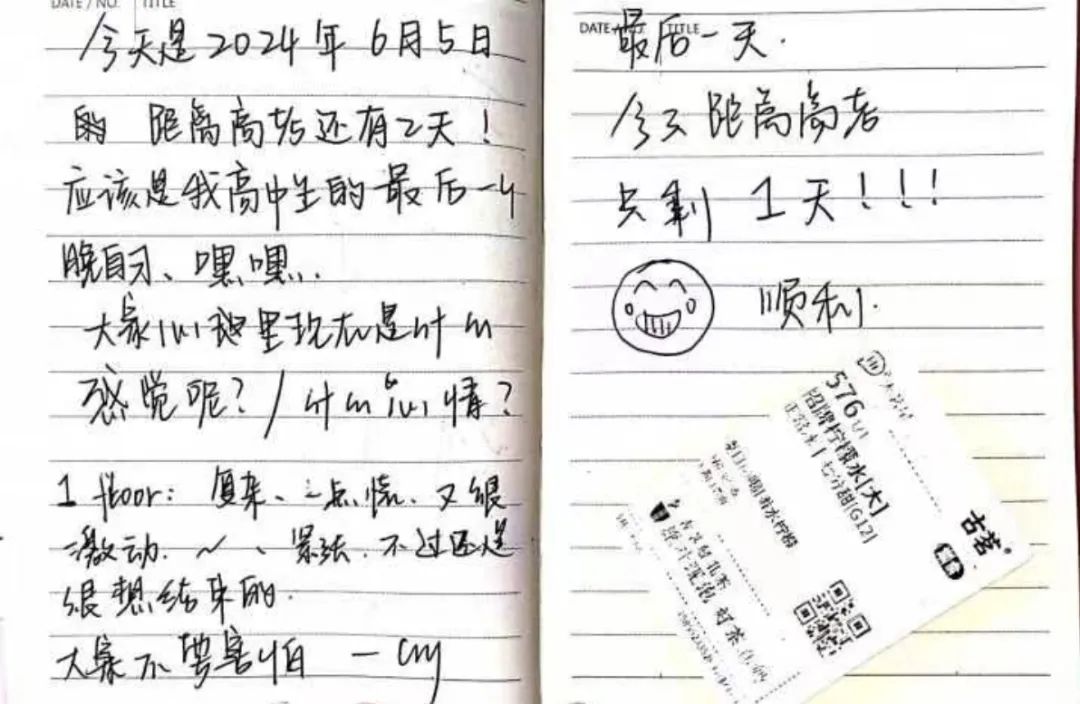 DATE / NO. TITLE
今天是2024年6月5日
的 距离高考还有2天！
应该是我高中生的最后一个
晚自习、嘿嘿...
大家心里现在是什么
感觉呢？/什么心情？
1 floor: 复杂、一点慌. 又很
激动. ~ 、紧张. 不过还是
很想结束的.
大家不要害怕 —
DATE / NO. TITLE
最后一天.
今天距离高考
只剩 1天！！！
顺利.
576
招牌柠檬水[大]
正常冰 | 七分甜[G12]
古茗